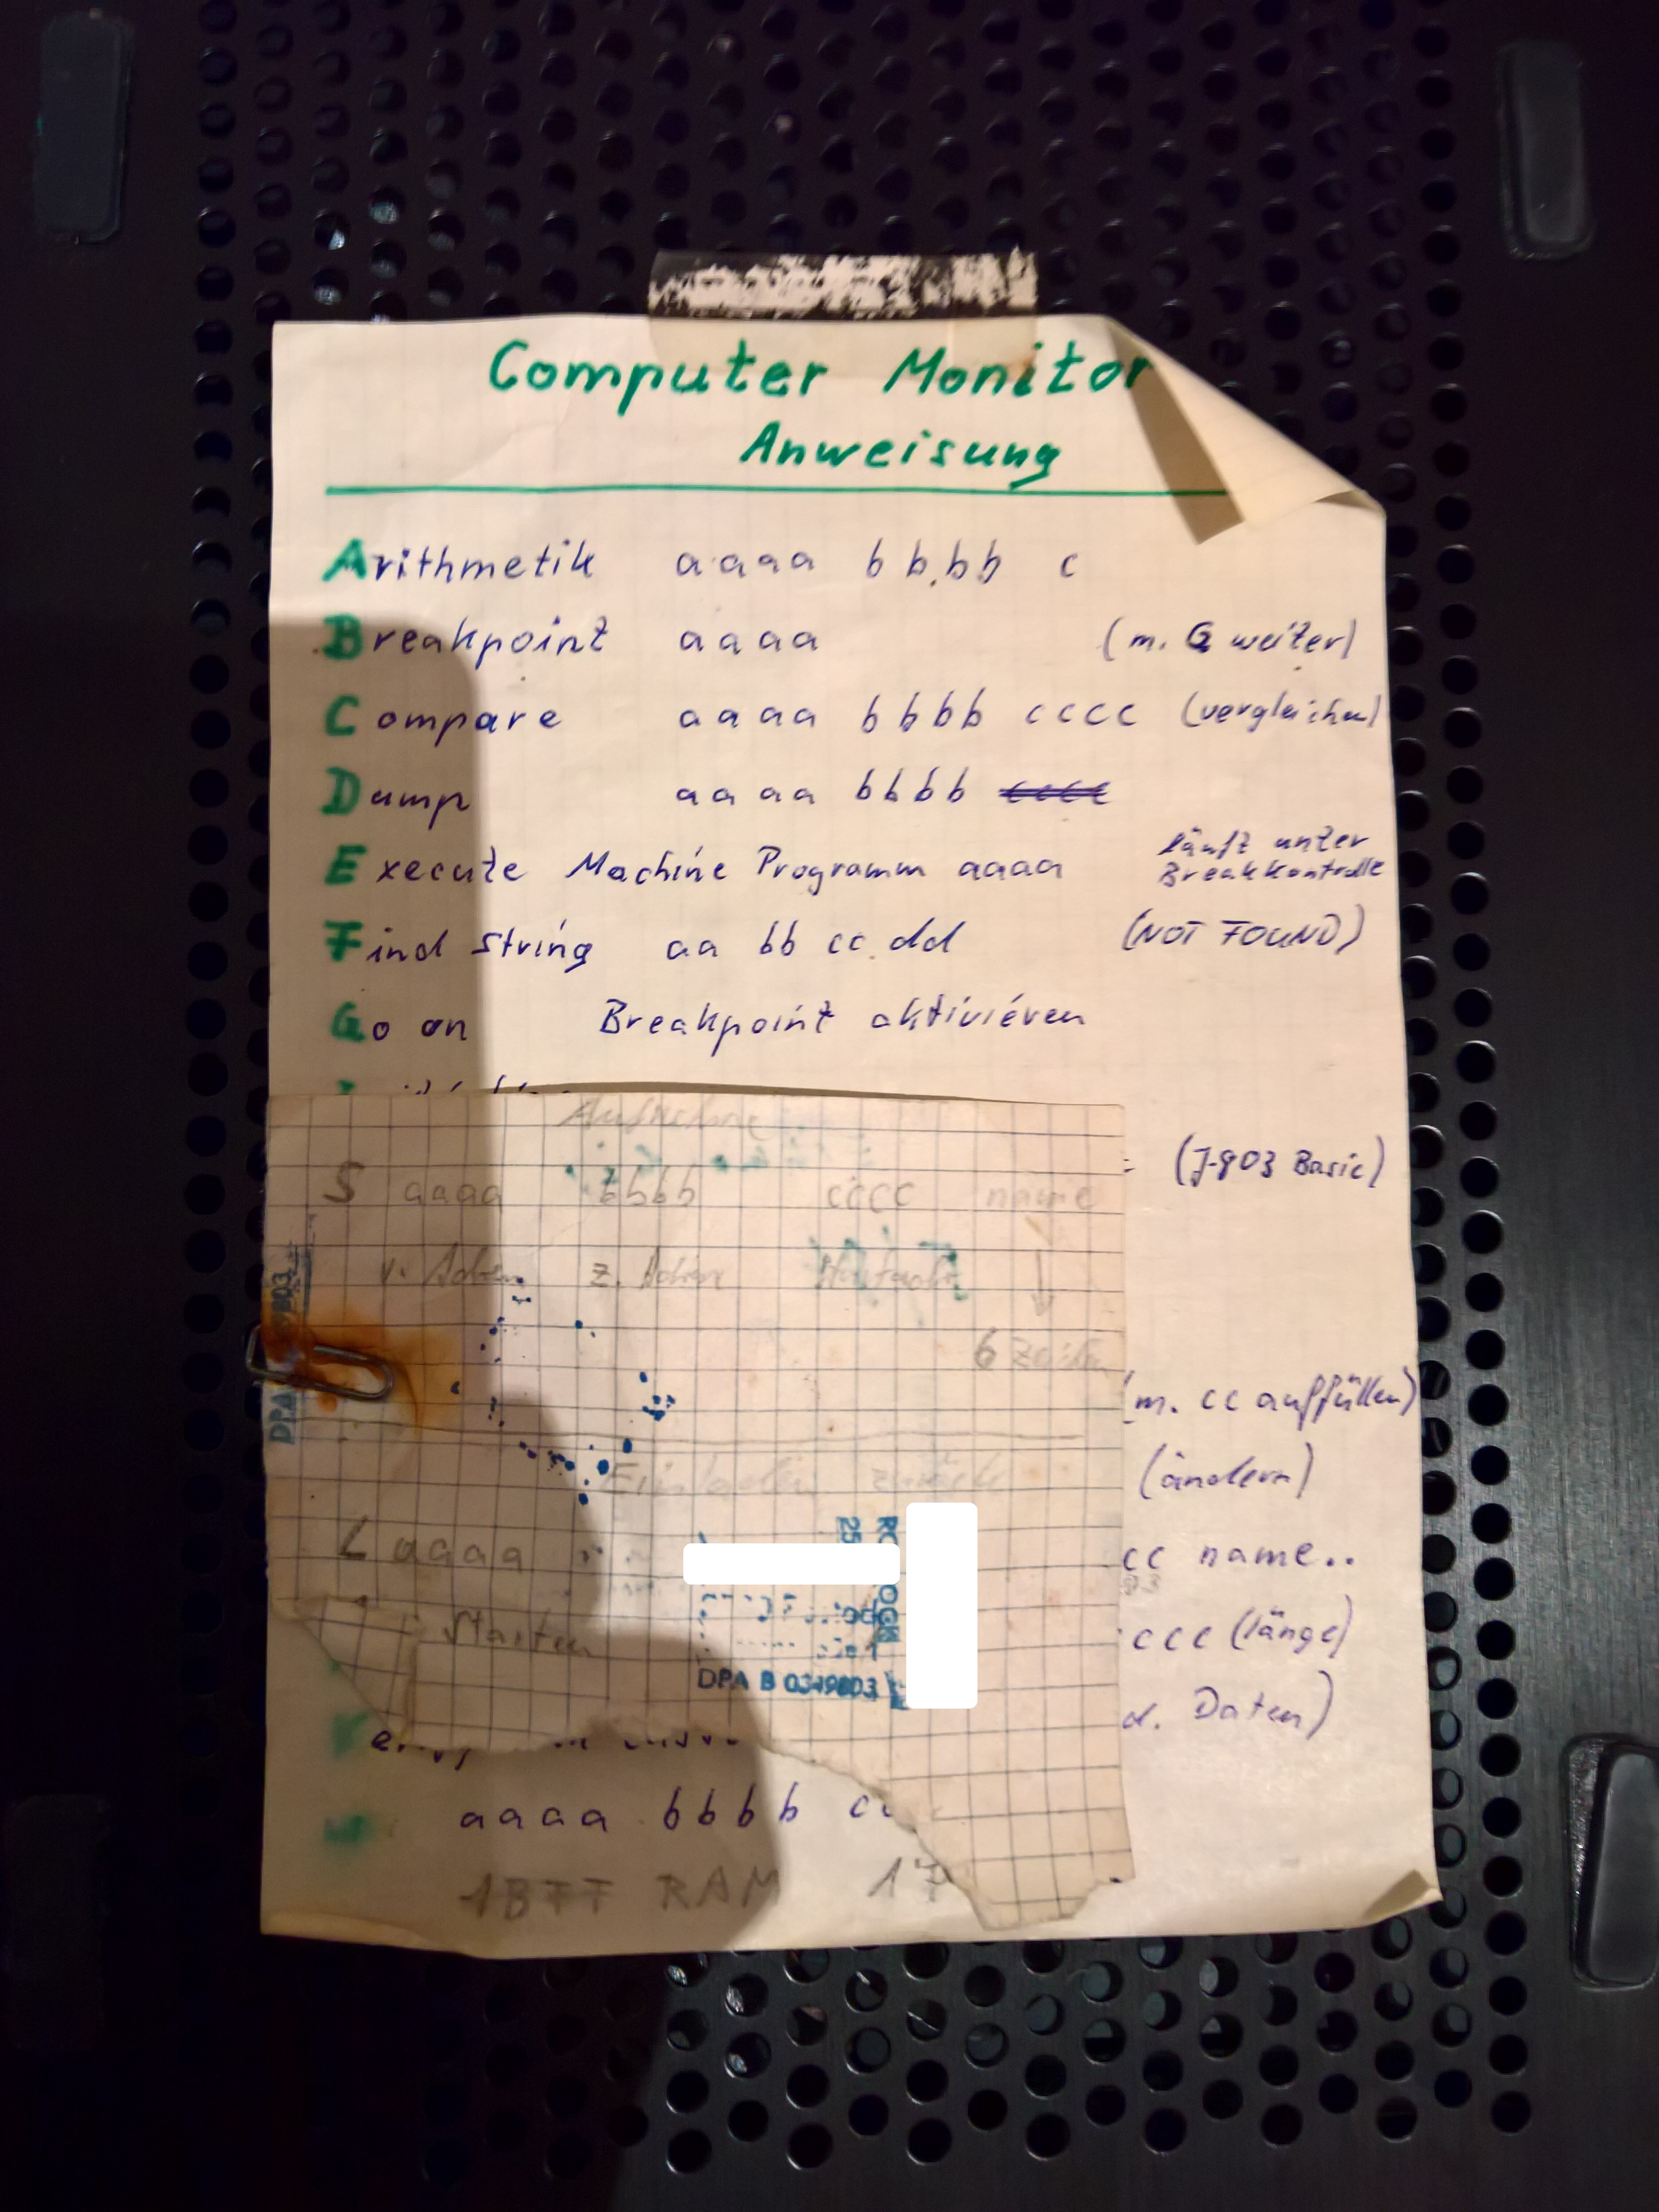 Computer Monitor
Anweisung
Arithmetik aaaa bbbb c
Breakpoint aaaa (m. G weiter)
Compare aaaa bbbb cccc (vergleichen)
Dump aaaa bbbb cccc
Execute Machine Programm aaaa läuft unter
Breakkontrolle
Find string aa bb cc dd (NOT FOUND)
Go on Breakpoint aktivieren
Aufnahme
S aaaa bbbb cccc name
(J-803 Basic)
6 Zeichen
(m. cc auffüllen)
Einladen zurück
(ändern)
L aaaa
cc name..
Starten
ccc (länge)
DPA B 0349803
d. Daten)
aaaa bbbb
1BFF RAM 17